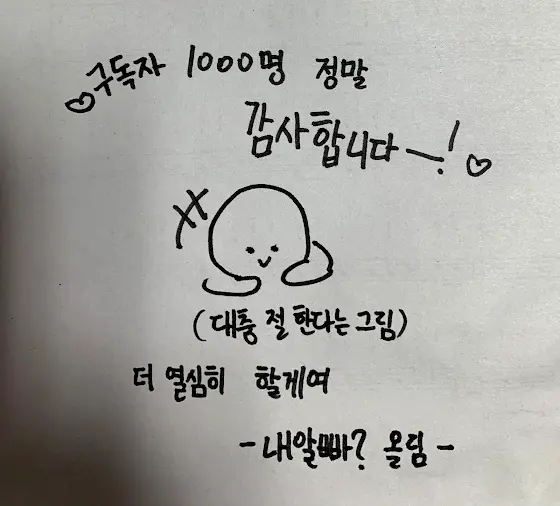 ♡구독자 1000명 정말
감사합니다~! ♡
(대충 절 한다는 그림)
더 열심히 할게여
- 내알빠? 올림 -